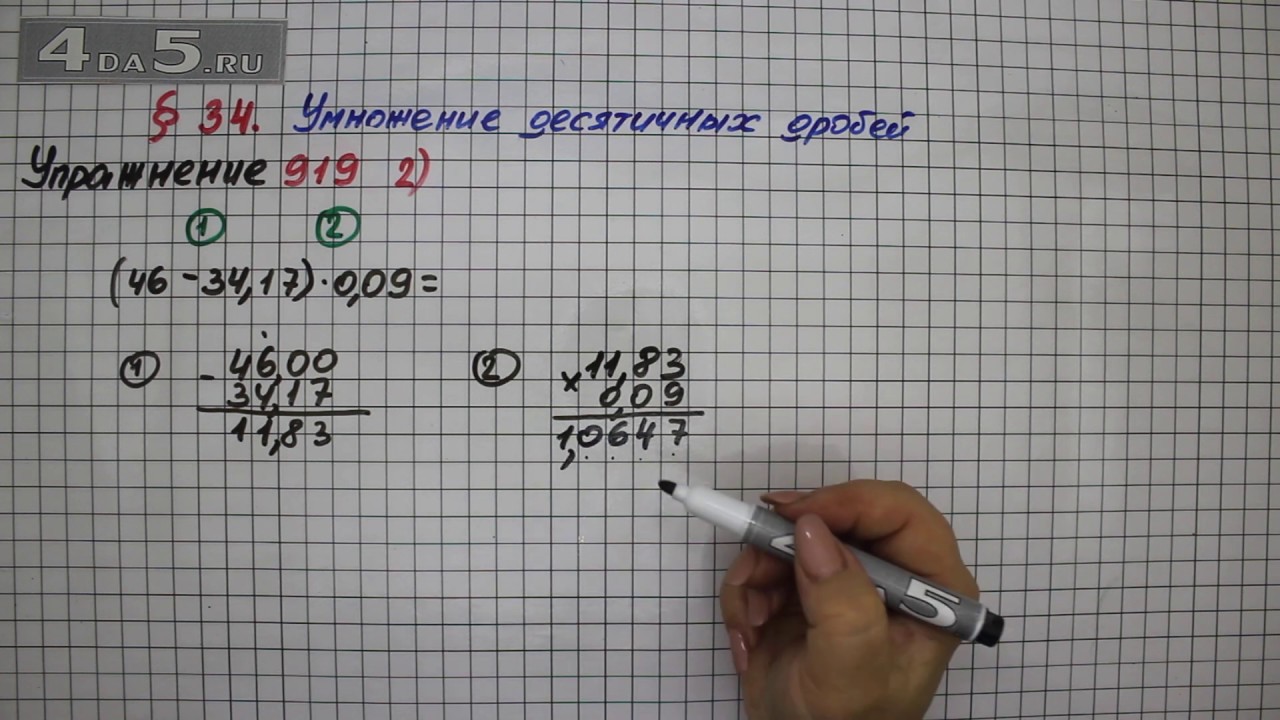 4DA5.RU
§ 34. Умножение десятичных дробей
Упражнение 919 2)
1 2
(46 - 34,17) · 0,09 =
1
- 46,00
34,17
11,83
2
x 11,83
0,09
1,0647
5